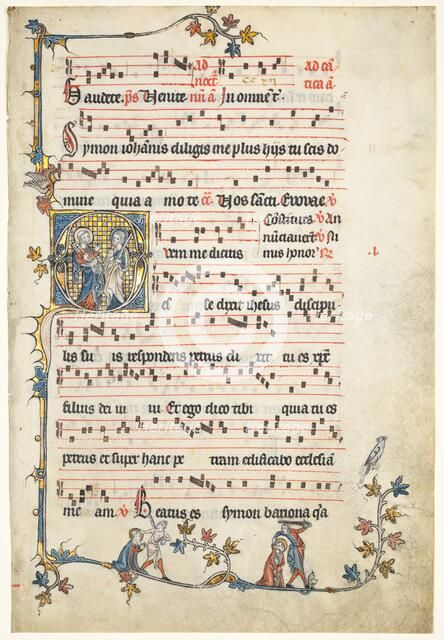 Gaudete. ps Venite. In omnem t.
ad ca
tica a
Symon iohannis diligis me plus hijs tu scis do
mine quia amo te Vos sancti. Euouae.
Constitues. An
nunciauerunt
uem me dicitis
nimis honor.
es se dixit ihesus discipu
lis su is respondens petrus di xit tu es xpc
filius dei ui ui Et ego dico tibi quia tu es
petrus et super hanc pe tram edificabo ecclesiam
me am. Beatus es symon bariona qia